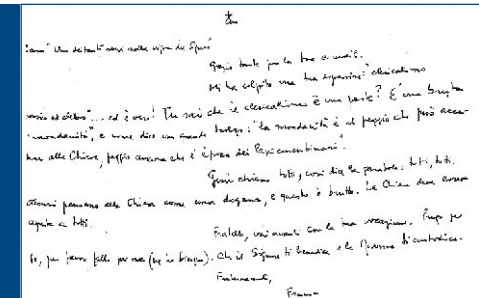 Uno dei tanti servi nella vigna del
Grazie tante per la tua e-mail.
Mi ha colpito una tua espressione: "clericalismo
ed è vero! Tu sai che il clericalismo è una peste? È una brutta
"mondanità", e come dice un grande teologo: "la mondanità è il peggio che può acca-
alla Chiesa, peggio ancora che dei Papi concubinari".
Gesù chiama tutti, così dice la parabola: tutti, tutti.
Alcuni pensano alla Chiesa come una dogana, e questo è brutto. La Chiesa deve essere
aperta a tutti.
Fratello, vai avanti con la tua vocazione. Prego per
te, per favore fallo per me (ne ho bisogno). Che il Signore ti benedica e la Madonna ti custodisca.
Fraternamente,